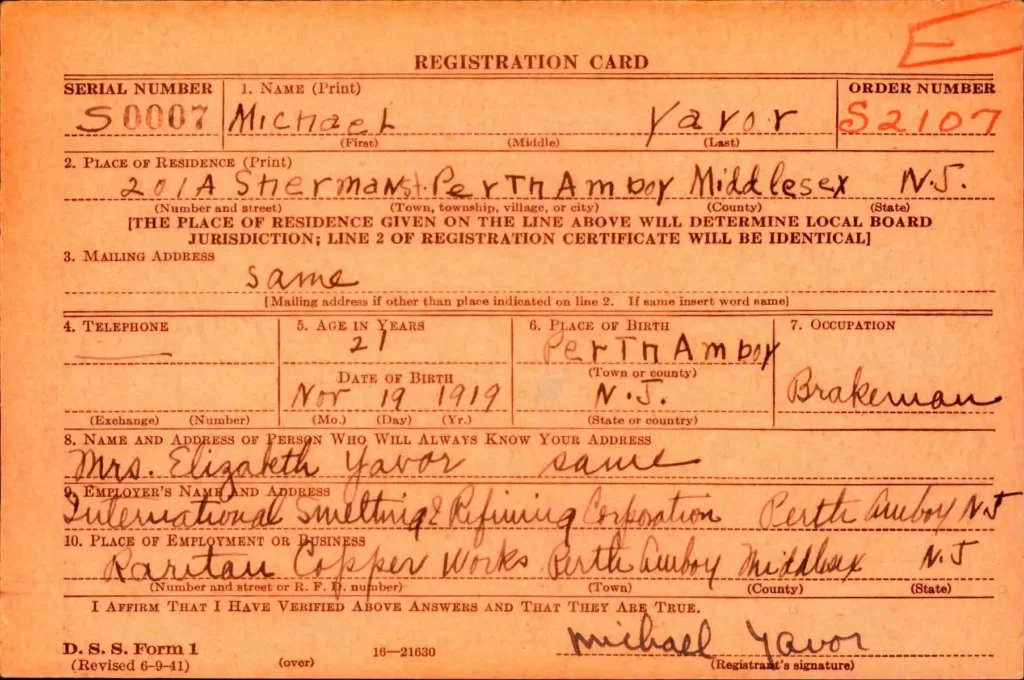 E
REGISTRATION CARD
SERIAL NUMBER 1. NAME (Print) ORDER NUMBER
S 0007 Michael Yavor S2107
(First) (Middle) (Last)
2. PLACE OF RESIDENCE (Print)
201A Sherman St. Perth Amboy Middlesex N.J.
(Number and street) (Town, township, village, or city) (County) (State)
[THE PLACE OF RESIDENCE GIVEN ON THE LINE ABOVE WILL DETERMINE LOCAL BOARD
JURISDICTION; LINE 2 OF REGISTRATION CERTIFICATE WILL BE IDENTICAL]
3. MAILING ADDRESS
same
[Mailing address if other than place indicated on line 2. If same insert word same]
4. TELEPHONE 5. AGE IN YEARS 6. PLACE OF BIRTH 7. OCCUPATION
21 Perth Amboy
(Town or county)
DATE OF BIRTH
Nov 19 1919 N.J. Brakeman
(Exchange) (Number) (Mo.) (Day) (Yr.) (State or country)
8. NAME AND ADDRESS OF PERSON WHO WILL ALWAYS KNOW YOUR ADDRESS
Mrs. Elizabeth Yavor same
9. EMPLOYER'S NAME AND ADDRESS
International Smelting & Refining Corporation Perth Amboy NJ
10. PLACE OF EMPLOYMENT OR BUSINESS
Raritan Copper Works Perth Amboy Middlesex N.J
(Number and street or R. F. D. number) (Town) (County) (State)
I AFFIRM THAT I HAVE VERIFIED ABOVE ANSWERS AND THAT THEY ARE TRUE.
D. S. S. Form 1 16—21630 Michael Yavor
(Revised 6-9-41) (over) (Registrant's signature)